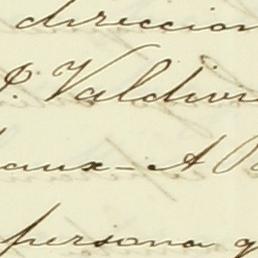 direccion
P. Valdivi
aux - A P
persona q